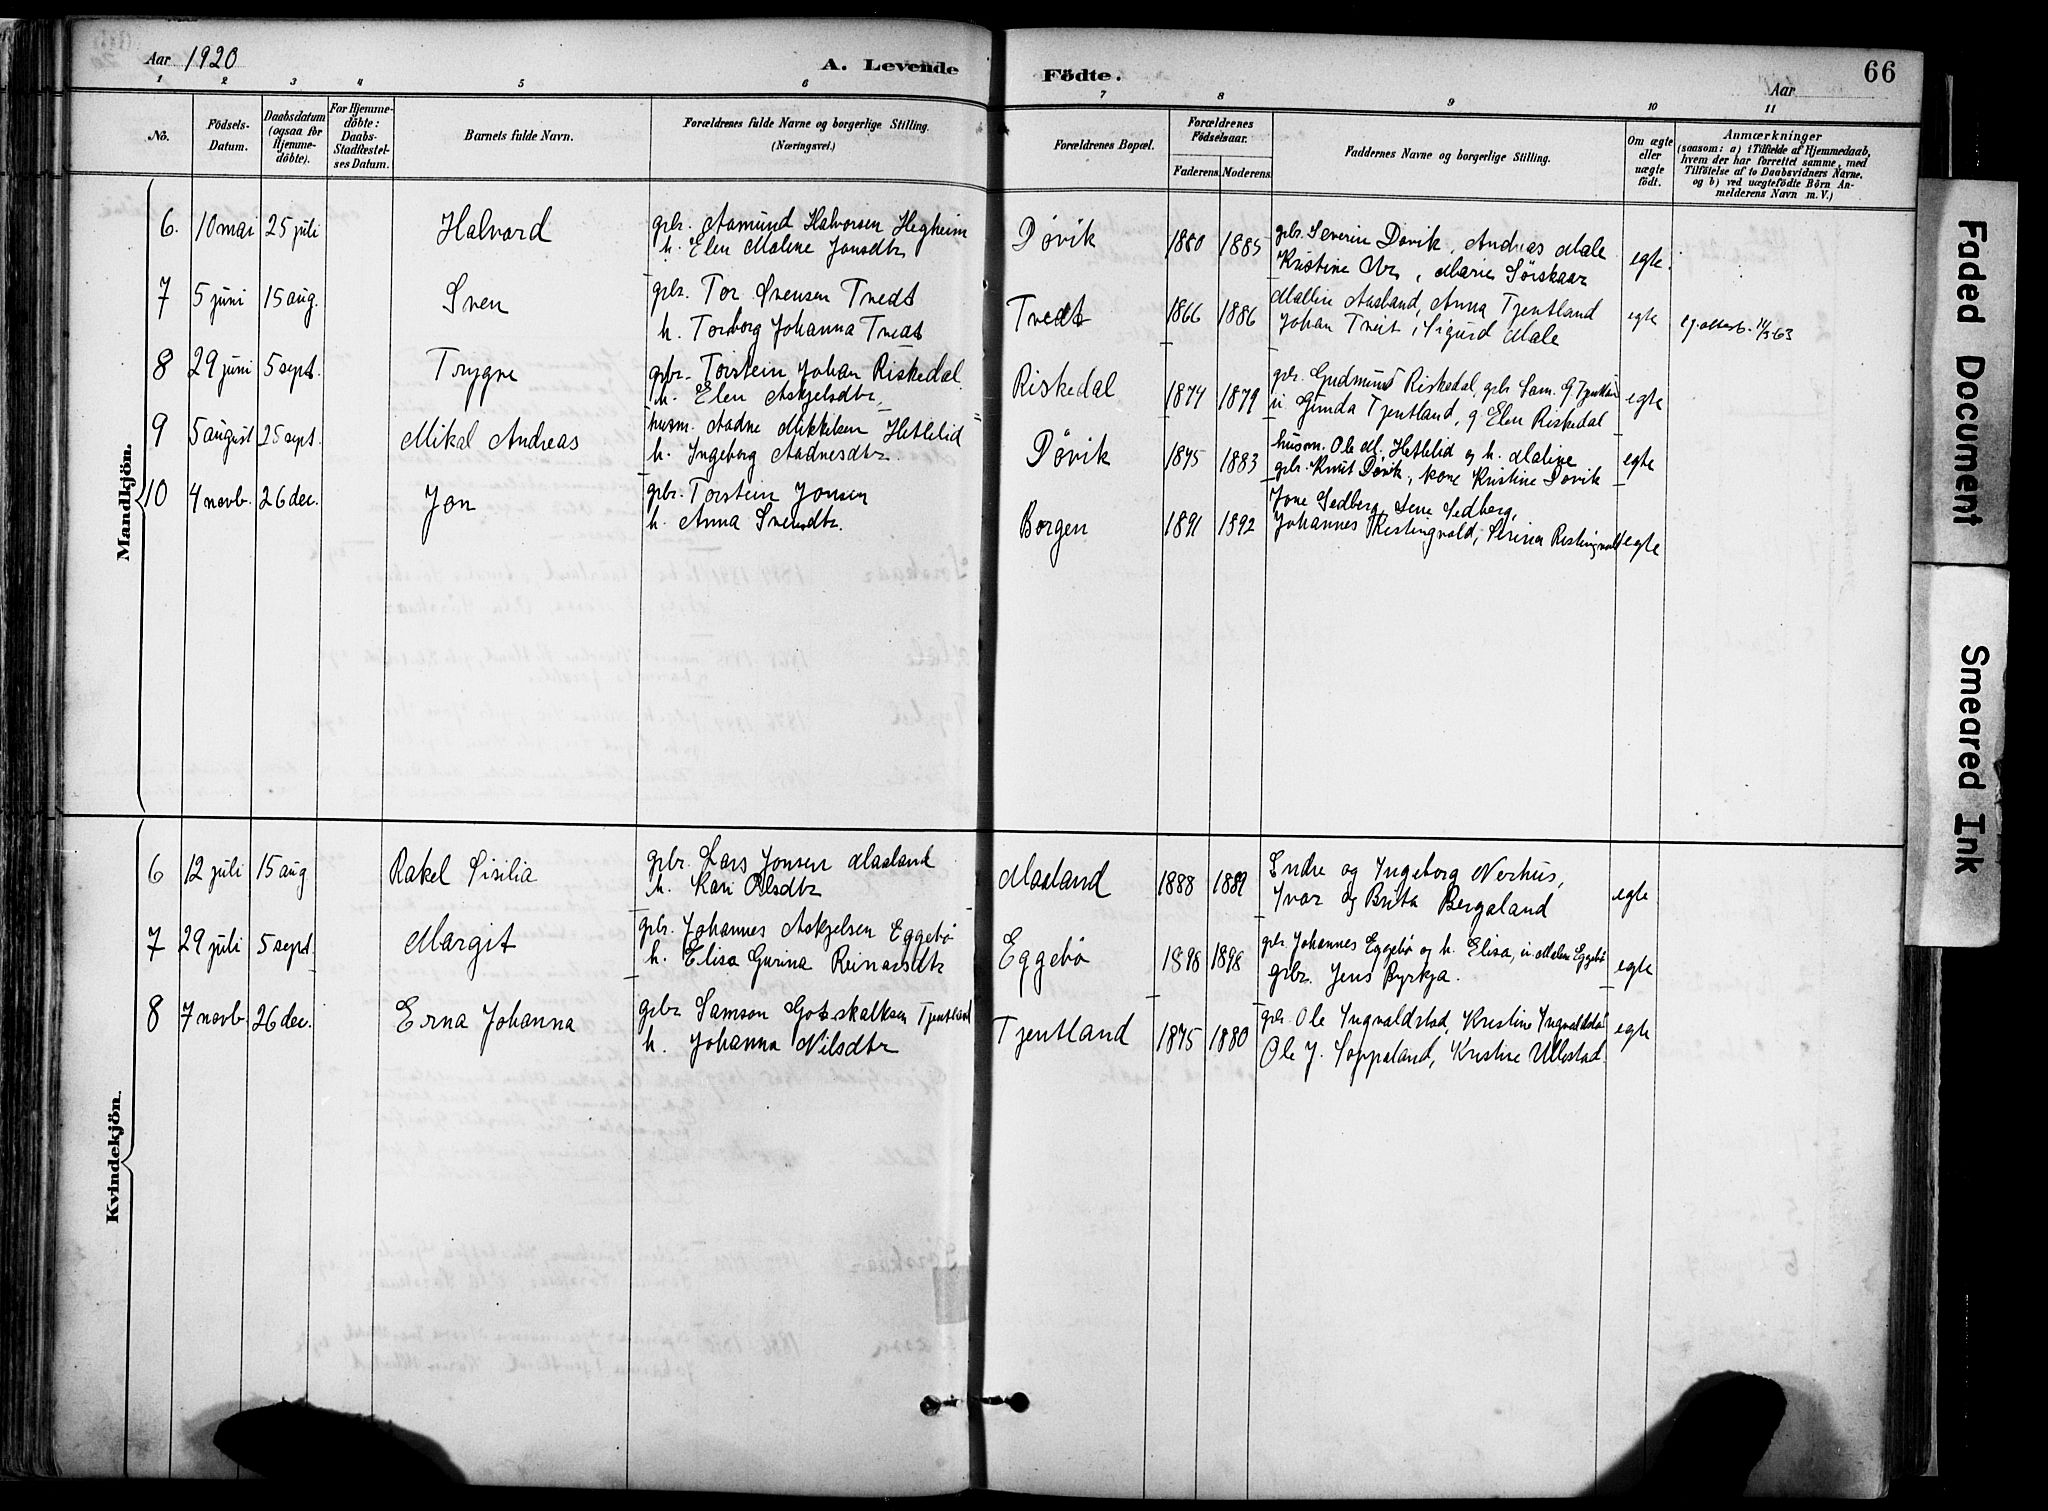 Aar 1920
A. Levende Födte.
66
Aar
1 2 3 4 5 6 7 8 9 10 11
No.
Födsels-Datum.
Daabsdatum (ogsaa for Hjemme-döbte).
For Hjemme-döbte: Daabs-Stadfæstel-ses Datum.
Barnets fulde Navn.
Forældrenes fulde Navne og borgerlige Stilling.
(Næringsvei.)
Forældrenes Bopæl.
Forældrenes Födselsaar.
Faderens. Moderens.
Faddernes Navne og borgerlige Stilling.
Om ægte eller uægte födt.
Anmærkninger
(saasom: a) i Tilfælde af Hjemmedaab,
hvem der har forrettet samme, med
Tilföielse af to Daabsvidners Navne.
og b) ved uægtefödte Börn An-
melderens Navn m. V.)
Mandkjön.
6. 10 mai 25 juli Halvard gbr. Aamund Halvorsen Hegheim
h. Elen Maline Jonsdtr
Døvik 1880 1885 gbr. Severin Døvik, Andreas Male
Kristine , Marie Sørskaar egte.
7 5 juni 15 aug. Sven gbr. Tor Svensen Tvedt
h. Torborg Johanna Tvedt
Tvedt 1866 1886 Malline Aasland, Anna Tjentland
Johan Tveit, Sigurd Male egte
8 29 juni 5 sept. Trygve gbr. Torstein Johan Riskedal
h. Elen Askjelsdtr.
Riskedal 1874 1879 gbr. Gudmund Riskedal, gbr Sam. G. Tjentland
u. Gunda Tjentland, g. Elen Riskedal egte
9 5 august 25 sept. Mikal Andreas husm. Aadne Mikkelsen Hetlelid
h. Ingeborg Aadnesdtr.
Døvik 1875 1883 husm. Ole M. Hetlelid og h. Maline
gbr. Knut Døvik, kone Kristine Døvik egte
10 4 novb. 26 dec. Jon gbr. Torstein Jonsen
h. Anna Svensdtr.
Borgen 1891 1892 Jone Sedberg, Lene Sedberg,
Johannes Ristingvold, Serina Ristingvold egte
Kvindekjön.
6 12 juli 15 aug Rakel Sisilia gbr. Lars Jonsen Maaland
h. Kari Olsdtr
Maaland 1888 1889 Sndre og Ingeborg Nerhus,
Ivar og Brita Bergaland egte
7 29 juli 5 sept. Margit gbr. Johannes Askjelsen Eggebø
h. Elisa Gurina Reinarsdtr
Eggebø 1898 1898 gbr. Johannes Eggebø og h. Elisa, u. Malene Eggebø
gbr. Jens Byrkja. egte
8 7 novb. 26 dec. Erna Johanna gbr Samson Gotskalksen Tjentland
h. Johanna Nilsdtr
Tjentland 1875 1880 gbr. Ole Ingvaldstad, Kristine Ingvaldstad
Ole J. Soppeland, Kristine Ullestad egte
Faded Document
Smeared Ink